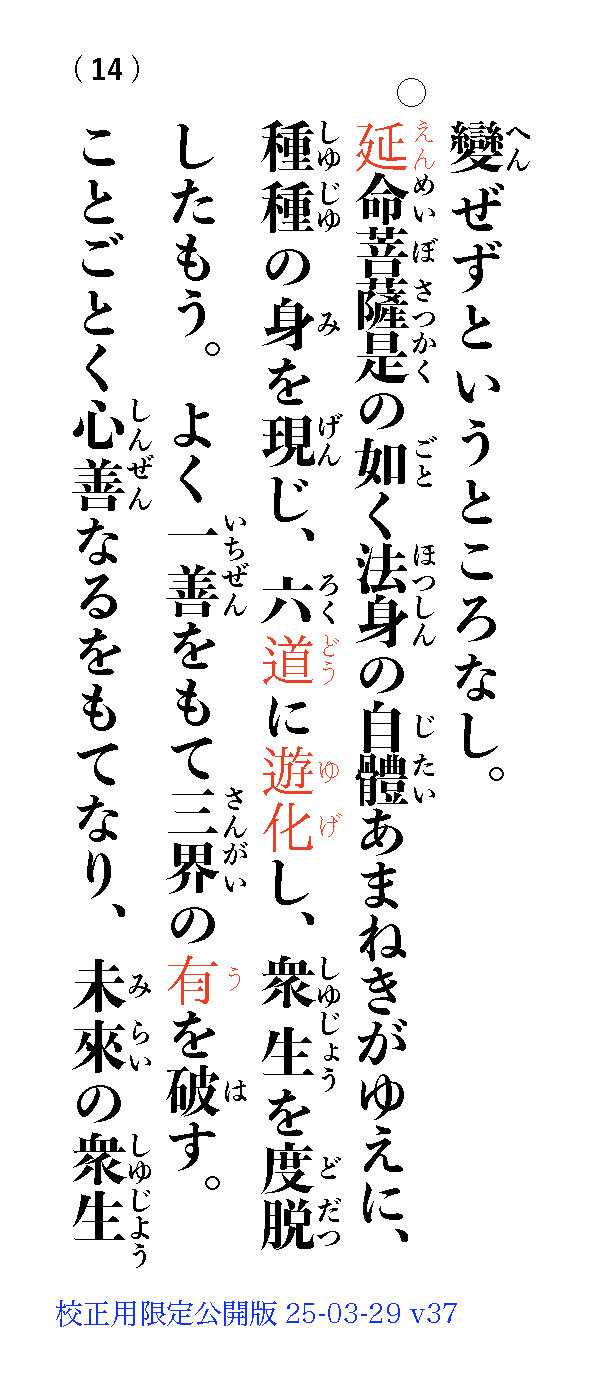 （14）
變ぜずというところなし。
○
延命菩薩是の如く法身の自體あまねきがゆえに、
種種の身を現じ、六道に遊化し、衆生を度脱
したもう。よく一善をもて三界の有を破す。
ことごとく心善なるをもてなり、未來の衆生
校正用限定公開版 25-03-29 v37